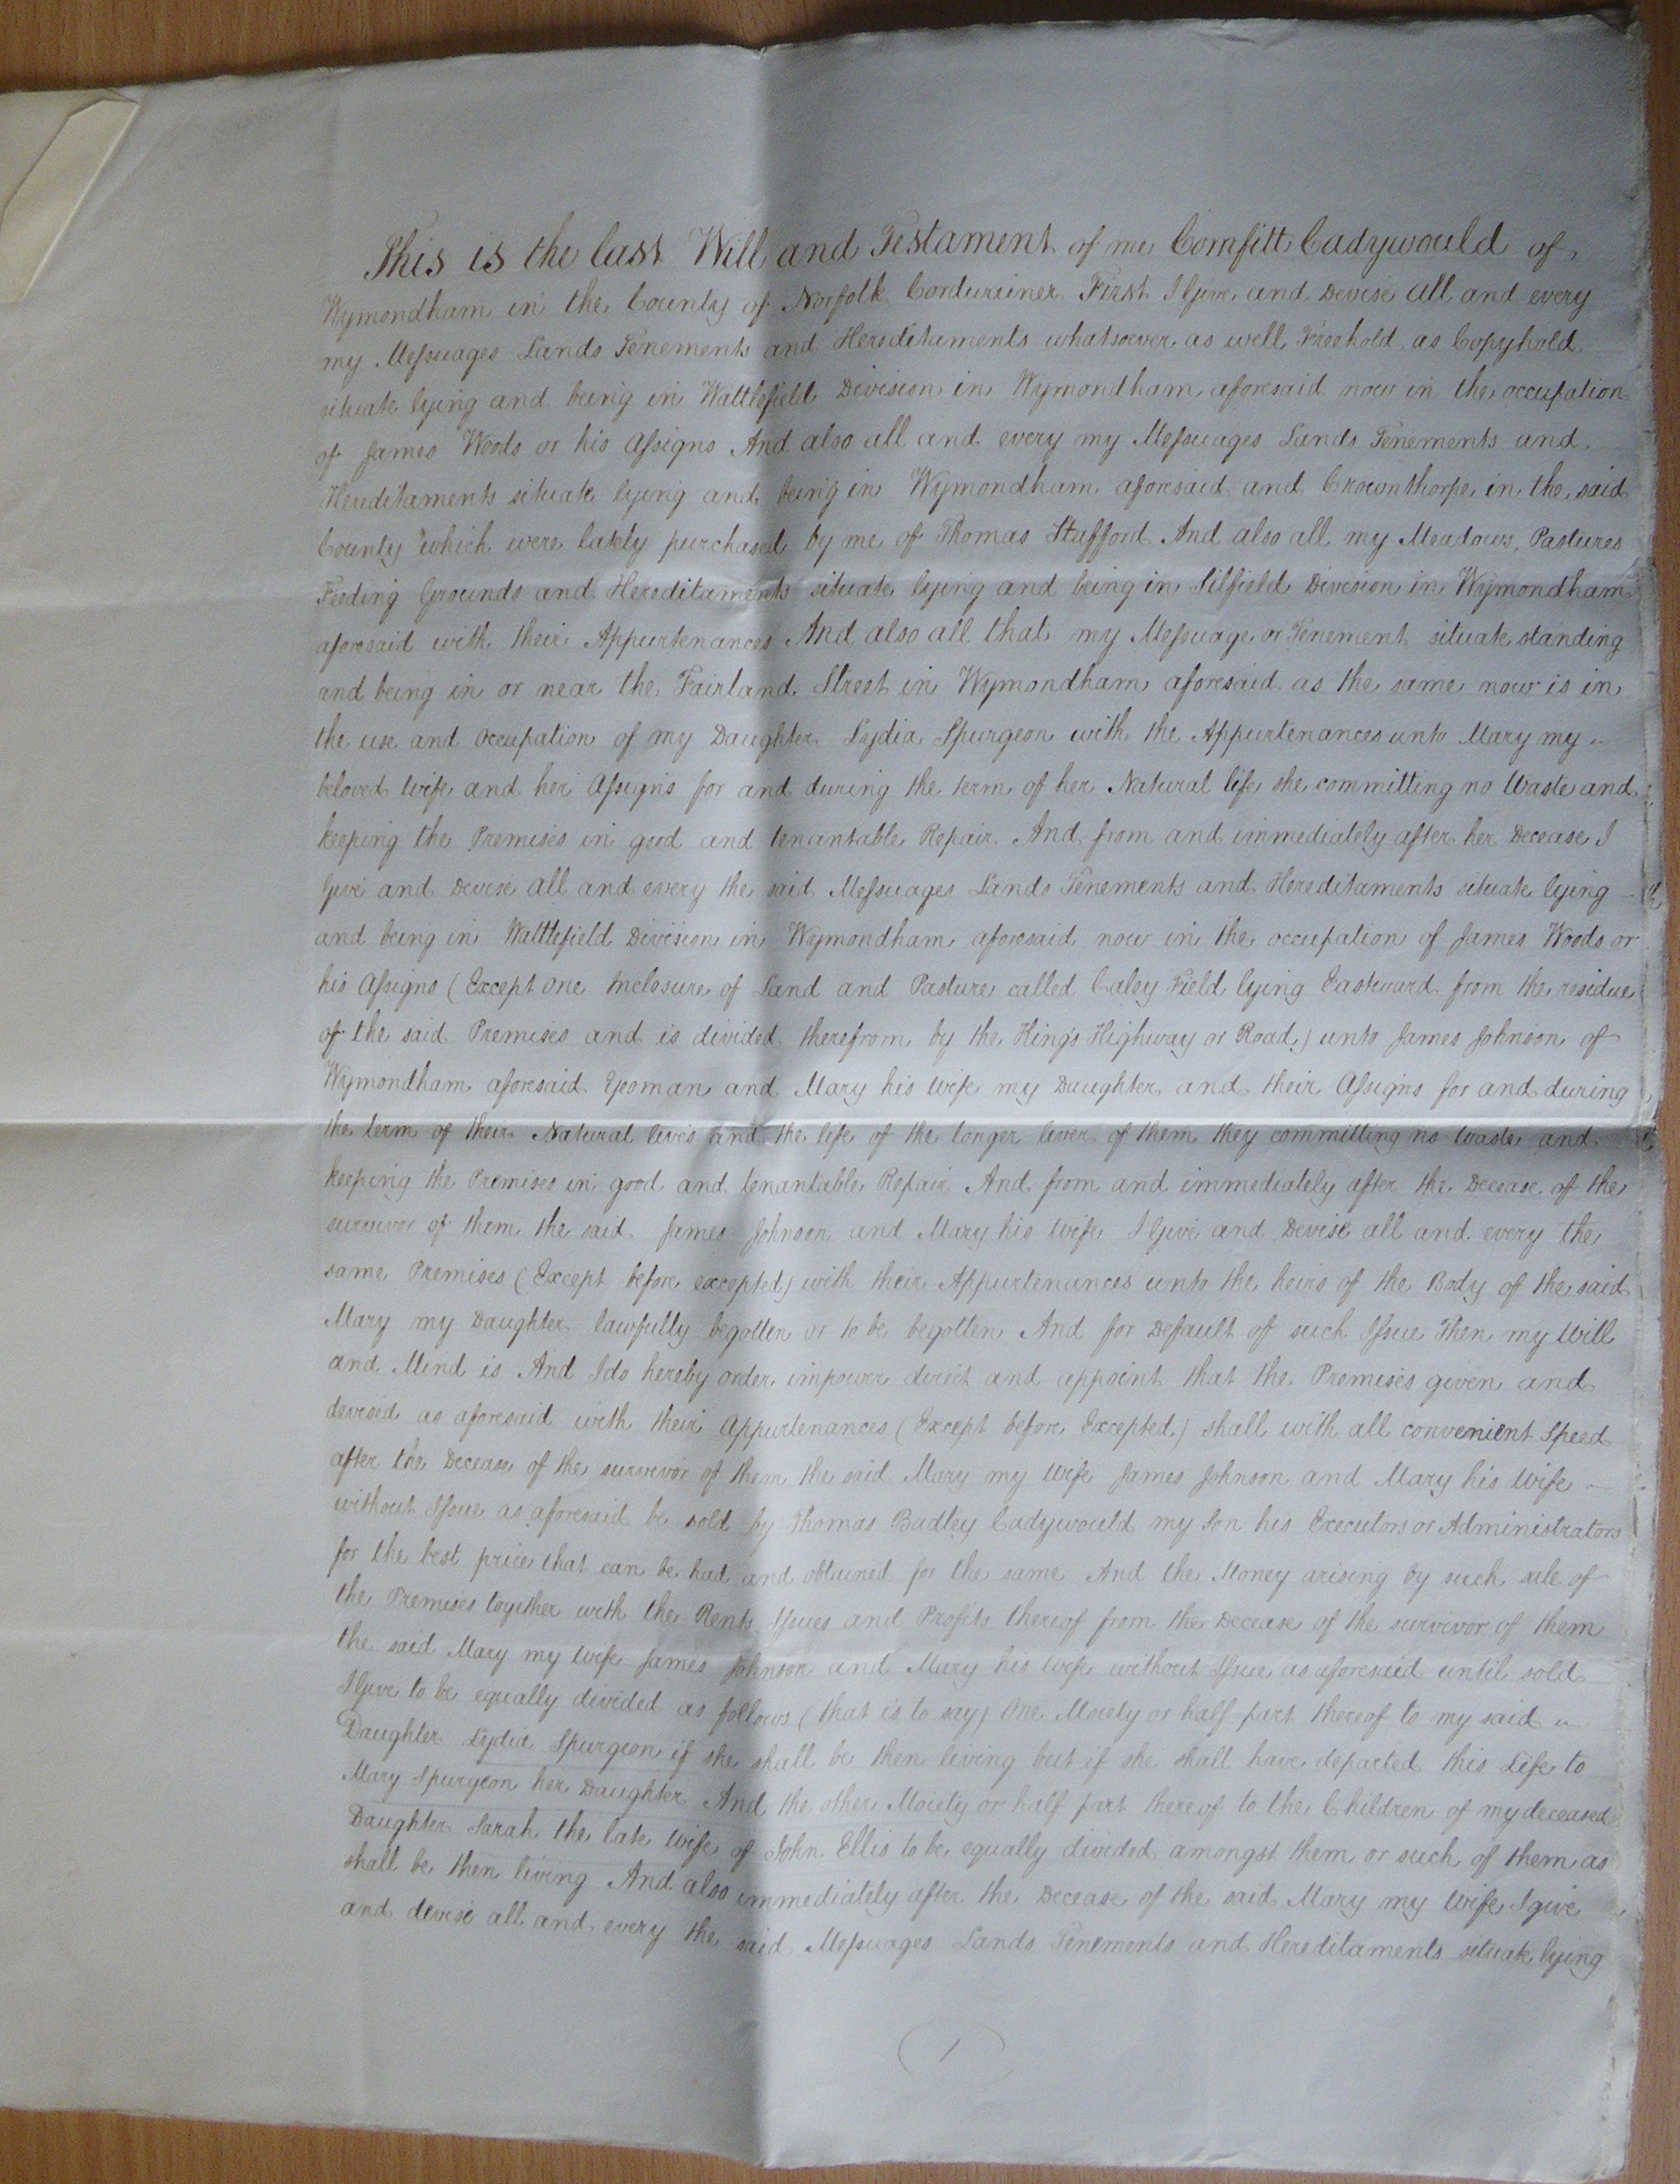 This is the last Will and Testament of me Comfitt Cadywould of
Wymondham in the County of Norfolk Cordwainer First I Give and Devise All and every
my Messuages Lands Tenements and Hereditaments whatsoever as well Freehold as Copyhold
situate lying and being in Wattlefield Division in Wymondham aforesaid now in the occupation
of James Woods or his Assigns And also all and every my Messuages Lands Tenements and
Hereditaments situate lying and being in Wymondham aforesaid and Crownthorpe in the said
County which were lately purchased by me of Thomas Stafford And also all my Meadows, Pastures
Feeding Grounds and Hereditaments situate lying and being in Silfield Division in Wymondham
aforesaid with their Appurtenances And also all that my Messuage or Tenement situate standing
and being in or near the Fairland Street in Wymondham aforesaid as the same now is in
the use and Occupation of my Daughter Lydia Spurgeon with the Appurtenances unto Mary my
beloved Wife and her Assigns for and during the term of her Natural life she committing no Waste and
keeping the Premises in good and tenantable Repair And from and immediately after her Decease I
Give and Devise all and every the said Messuages Lands Tenements and Hereditaments situate lying
and being in Wattlefield Division in Wymondham aforesaid now in the occupation of James Woods or
his Assigns (Except one Inclosure of Land and Pasture called Caley Field lying Eastward from the residue
of the said Premises and is divided therefrom by the King's Highway or Road) unto James Johnson of
Wymondham aforesaid Yeoman and Mary his Wife my Daughter and their Assigns for and during
the term of their Natural lives and the life of the longer liver of them they committing no Waste and
keeping the Premises in good and tenantable Repair And from and immediately after the Decease of the
survivor of them the said James Johnson and Mary his Wife I Give and Devise all and every the
same Premises (Except before excepted) with their Appurtenances unto the heirs of the Body of the said
Mary my Daughter lawfully begotten or to be begotten And for Default of such Issue Then my Will
and Mind is And I do hereby order impower direct and appoint that the Premises given and
devised as aforesaid with their Appurtenances (Except before Excepted) shall with all convenient Speed
after the Decease of the survivor of them the said Mary my Wife James Johnson and Mary his Wife
without Issue as aforesaid be sold by Thomas Badley Cadywould my Son his Executors or Administrators
for the best price that can be had and obtained for the same And the Money arising by such sale of
the Premises together with the Rents Issues and Profits thereof from the Decease of the survivor of them
the said Mary my Wife James Johnson and Mary his Wife without Issue as aforesaid until sold
I Give to be equally divided as follows (that is to say) One Moiety or half part thereof to my said
Daughter Lydia Spurgeon if she shall be then living but if she shall have departed this Life to
Mary Spurgeon her Daughter And the other Moiety or half part thereof to the Children of my deceased
Daughter Sarah the late Wife of John Ellis to be equally divided amongst them or such of them as
shall be then living And also immediately after the Decease of the said Mary my Wife I give
and devise all and every the said Messuages Lands Tenements and Hereditaments situate lying
1